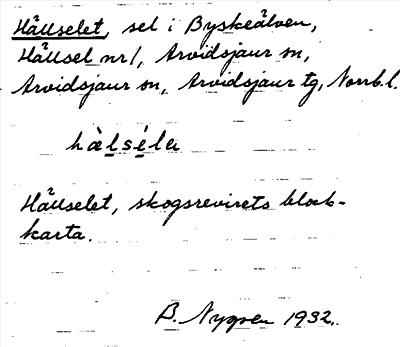 Hällselet, sel i Byskeälven,
Hällsel nr 1, Arvidsjaur sn,
Arvidsjaur sn, Arvidsjaur tg, Norrb. l.
hàlséla
Hällselet, skogsrevirets block-
karta.
B. Nygren 1932.